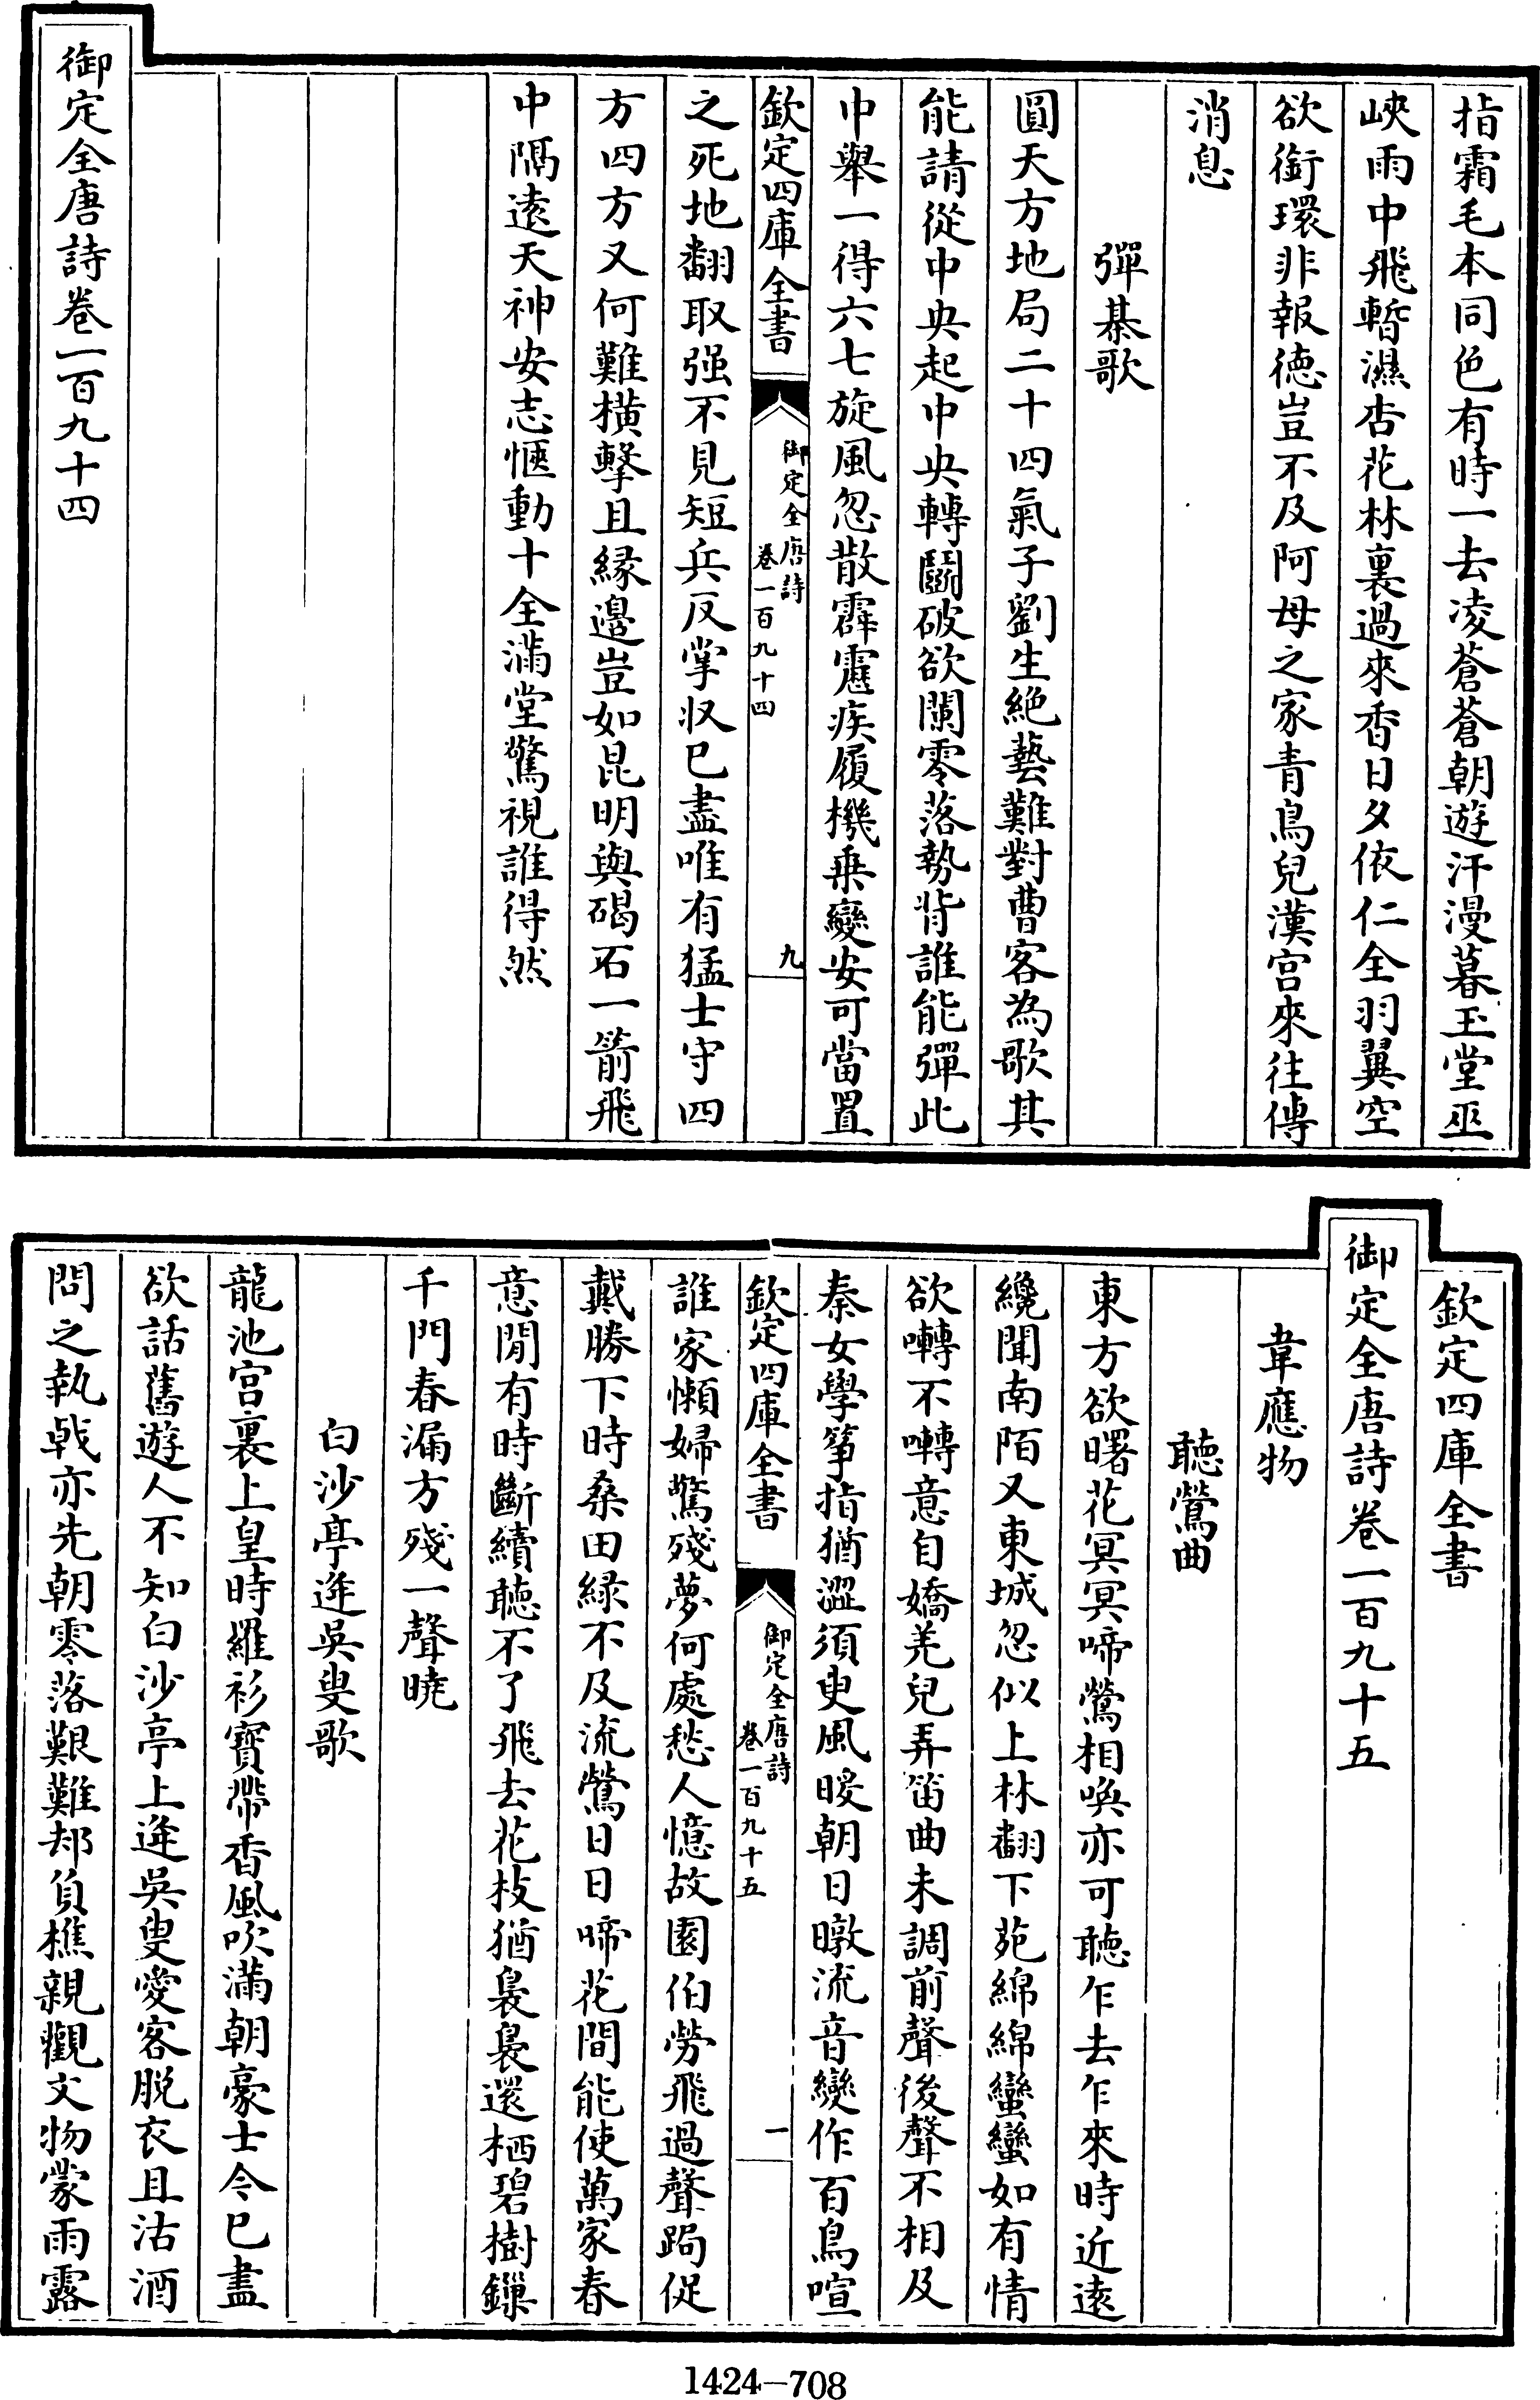 指霜毛本同色有時一去凌蒼蒼朝遊汗漫暮玉堂巫
峽雨中飛暫濕杏花林裏過來香日夕依仁全羽翼空
欲銜環非報徳豈不及阿母之家青鳥兒漢宫來往傳
消息
彈棊歌
圓天方地局二十四氣子劉生絶藝難對曹客為歌其
能請從中央起中央轉鬭破欲闌零落勢背誰能彈此
中舉一得六七旋風忽散霹靂疾履機乗變安可當置
欽定四庫全書
御定全唐詩
卷一百九十四
九
之死地翻取强不見短兵反掌収已盡唯有猛士守四
方四方又何難横擊且縁邉豈如昆明與碣石一箭飛
中隔逺天神安志愜動十全滿堂驚視誰得然
御定全唐詩卷一百九十四
欽定四庫全書
御定全唐詩卷一百九十五
韋應物
聴鶯曲
東方欲曙花冥冥啼鶯相喚亦可聴乍去乍來時近逺
纔聞南陌又東城忽似上林翻下苑綿綿蠻蠻如有情
欲囀不囀意自嬌羌兒弄笛曲未調前聲後聲不相及
秦女學筝指猶澀須臾風暖朝日暾流音變作百鳥喧
欽定四庫全書
御定全唐詩
卷一百九十五
一
誰家懶婦驚殘夢何處愁人憶故園伯勞飛過聲跼促
戴勝下時桑田緑不及流鶯日日啼花間能使萬家春
意閒有時斷續聴不了飛去花枝猶裊裊還栖碧樹鏁
千門春漏方殘一聲曉
白沙亭逢吳叟歌
龍池宫裏上皇時羅衫寳帶香風吹滿朝豪士今已盡
欲話舊遊人不知白沙亭上逢吳叟愛客脱衣且沽酒
問之執㦸亦先朝零落艱難却負樵親觀文物蒙雨露
1424—708